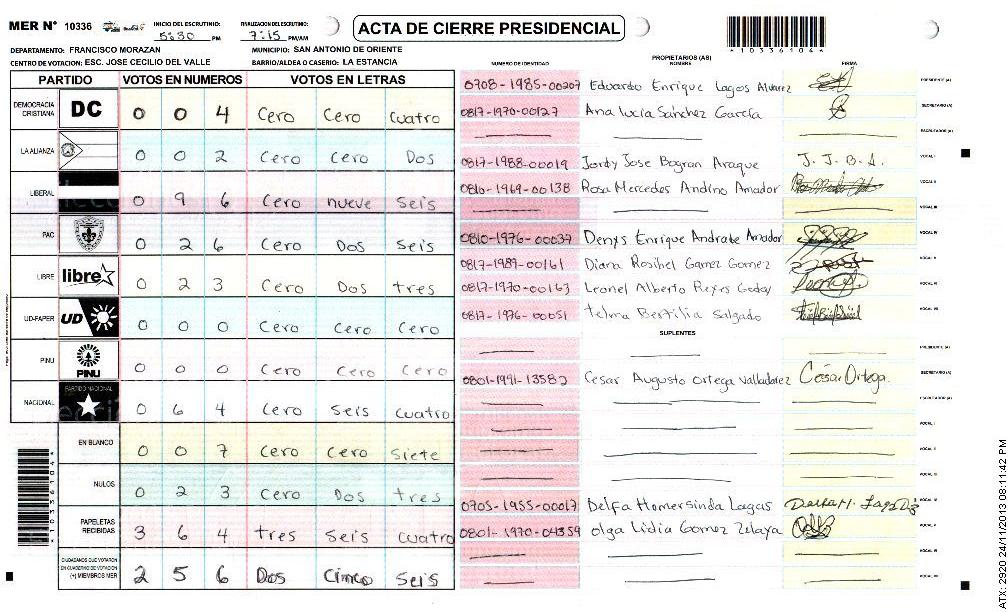 MER N° 10336 INICIO DEL ESCRUTINIO: 5:30 PM FINALIZACION DEL ESCRUTINIO: 7:15 PM/AM ACTA DE CIERRE PRESIDENCIAL
DEPARTAMENTO: FRANCISCO MORAZAN MUNICIPIO: SAN ANTONIO DE ORIENTE
CENTRO DE VOTACION: ESC. JOSE CECILIO DEL VALLE BARRIO/ALDEA O CASERIO: LA ESTANCIA
*10336104*
PARTIDO VOTOS EN NUMEROS VOTOS EN LETRAS
DEMOCRACIA CRISTIANA DC 0 0 4 Cero Cero Cuatro
LA ALIANZA 0 0 2 Cero Cero Dos
LIBERAL 0 9 6 Cero nueve Seis
PAC 0 2 6 Cero Dos Seis
LIBRE libre 0 2 3 Cero Dos tres
UD-FAPER UD 0 0 0 Cero Cero Cero
PINU PINU 0 0 0 Cero Cero Cero
NACIONAL PARTIDO NACIONAL 0 6 4 Cero Seis cuatro
EN BLANCO 0 0 7 Cero Cero Siete
NULOS 0 2 3 Cero Dos tres
PAPELETAS RECIBIDAS 3 6 4 tres Seis cuatro
CIUDADANOS QUE VOTARON EN CUADERNO DE VOTACION (+) MIEMBROS MER 2 5 6 Dos Cinco Seis
*10336104*
PROPIETARIOS (AS)
NUMERO DE IDENTIDAD NOMBRE FIRMA
0708-1985-00207 Eduardo Enrique Lagos Alvarez PRESIDENTE (A)
0817-1970-00127 Ana Lucia Sanchez Garcia SECRETARIO (A)
ESCRUTADOR (A)
0817-1988-00019 Jordy Jose Bogran Araque J. J. B. A. VOCAL I
0810-1969-00138 Rosa Mercedes Andino Amador VOCAL II
VOCAL III
0810-1976-00037 Denys Enrique Andrate Amador VOCAL IV
0817-1989-00161 Diana Rosibel Gamez Gomez VOCAL V
0817-1970-00163 Leonel Alberto Reyes Godoy VOCAL VI
0817-1976-00051 Telma Bertilia Salgado VOCAL VII
SUPLENTES
PRESIDENTE (A)
0801-1991-13582 Cesar Augusto Ortega Valladarez César Ortega. SECRETARIO (A)
ESCRUTADOR (A)
VOCAL I
VOCAL II
VOCAL III
0705-1955-00017 Delfa Homersinda Lagas VOCAL IV
0801-1970-04359 Olga Lidia Gomez Zelaya VOCAL V
VOCAL VI
VOCAL VII
ATX: 2920 24/11/2013 08:11:42 PM